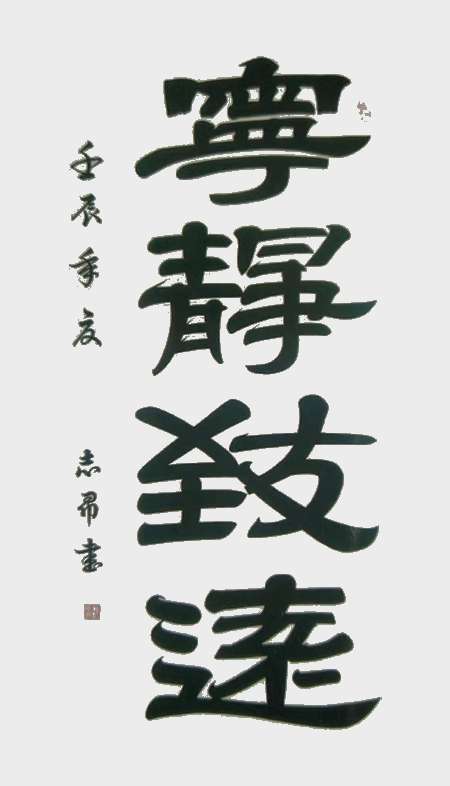 寧靜致遠
壬辰年夏
志昂書